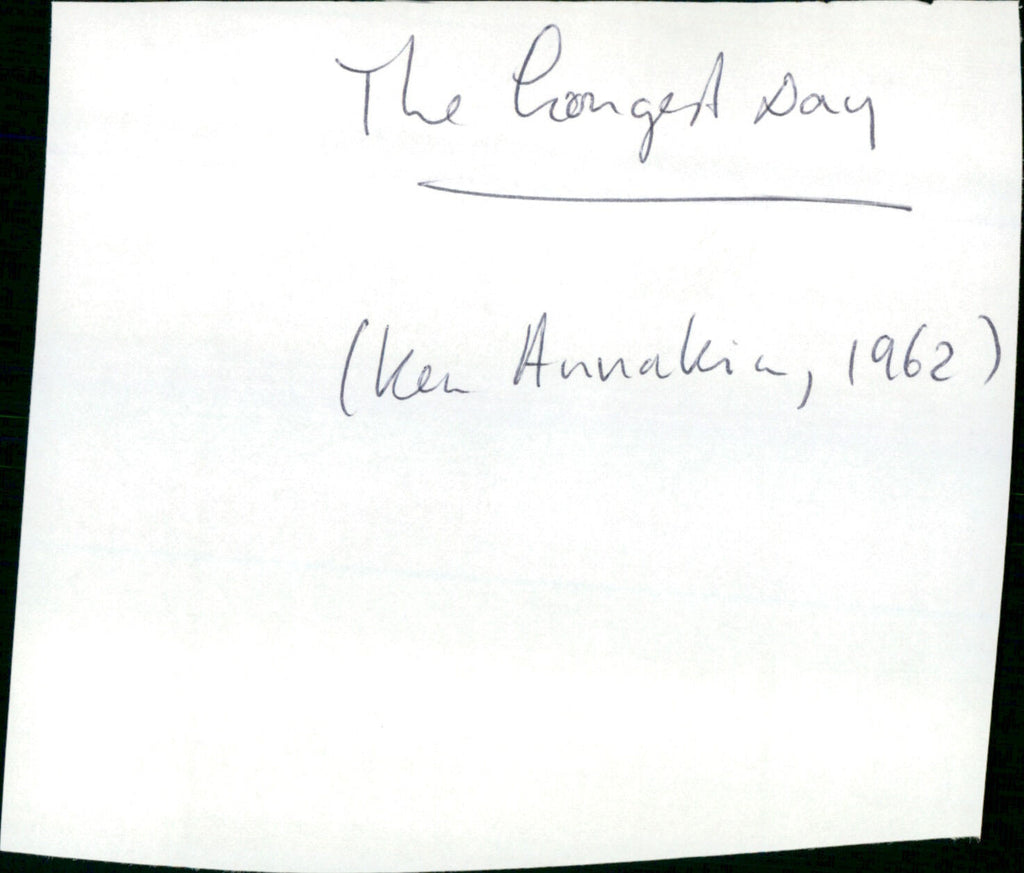 The Longest Day
(Ken Annakin, 1962)